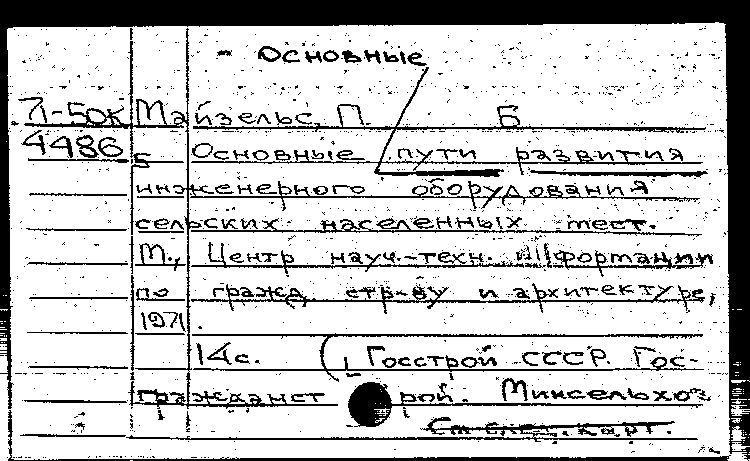 - Основные
Л-50к Майзельс, П. Б
4486 5 Основные пути развития
инженерного оборудования
сельских населенных мест.
М., Центр науч.-техн. информации
по гражд. стр-ву и архитектуре,
1971.
14 с. (Госстрой СССР. Гос-
гражданст рой. Минсельхоз
См. след. карт.